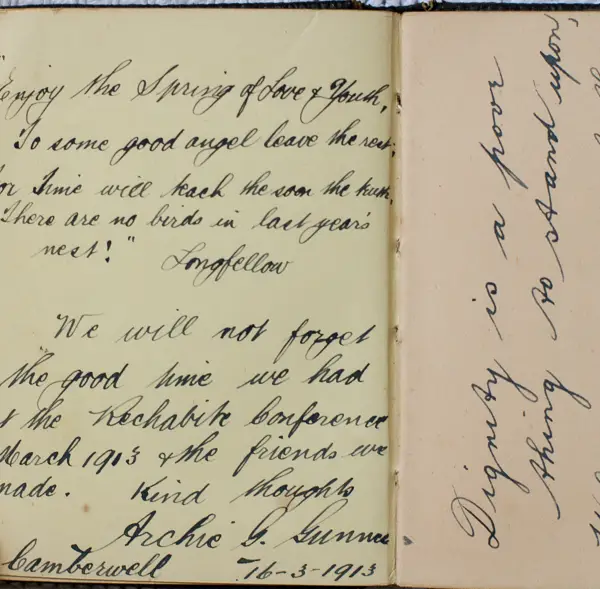 "Enjoy the Spring of Love & Youth,
To some good angel leave the rest;
For Time will teach thee soon the truth,
There are no birds in last year's
nest!" Longfellow
We will not forget
the good time we had
at the Rechabite Conference
March 1913 & the friends we
made. Kind thoughts
Archie G. Gunn
Camberwell 16-3-1913
Dignity is a poor
thing to stand upon,